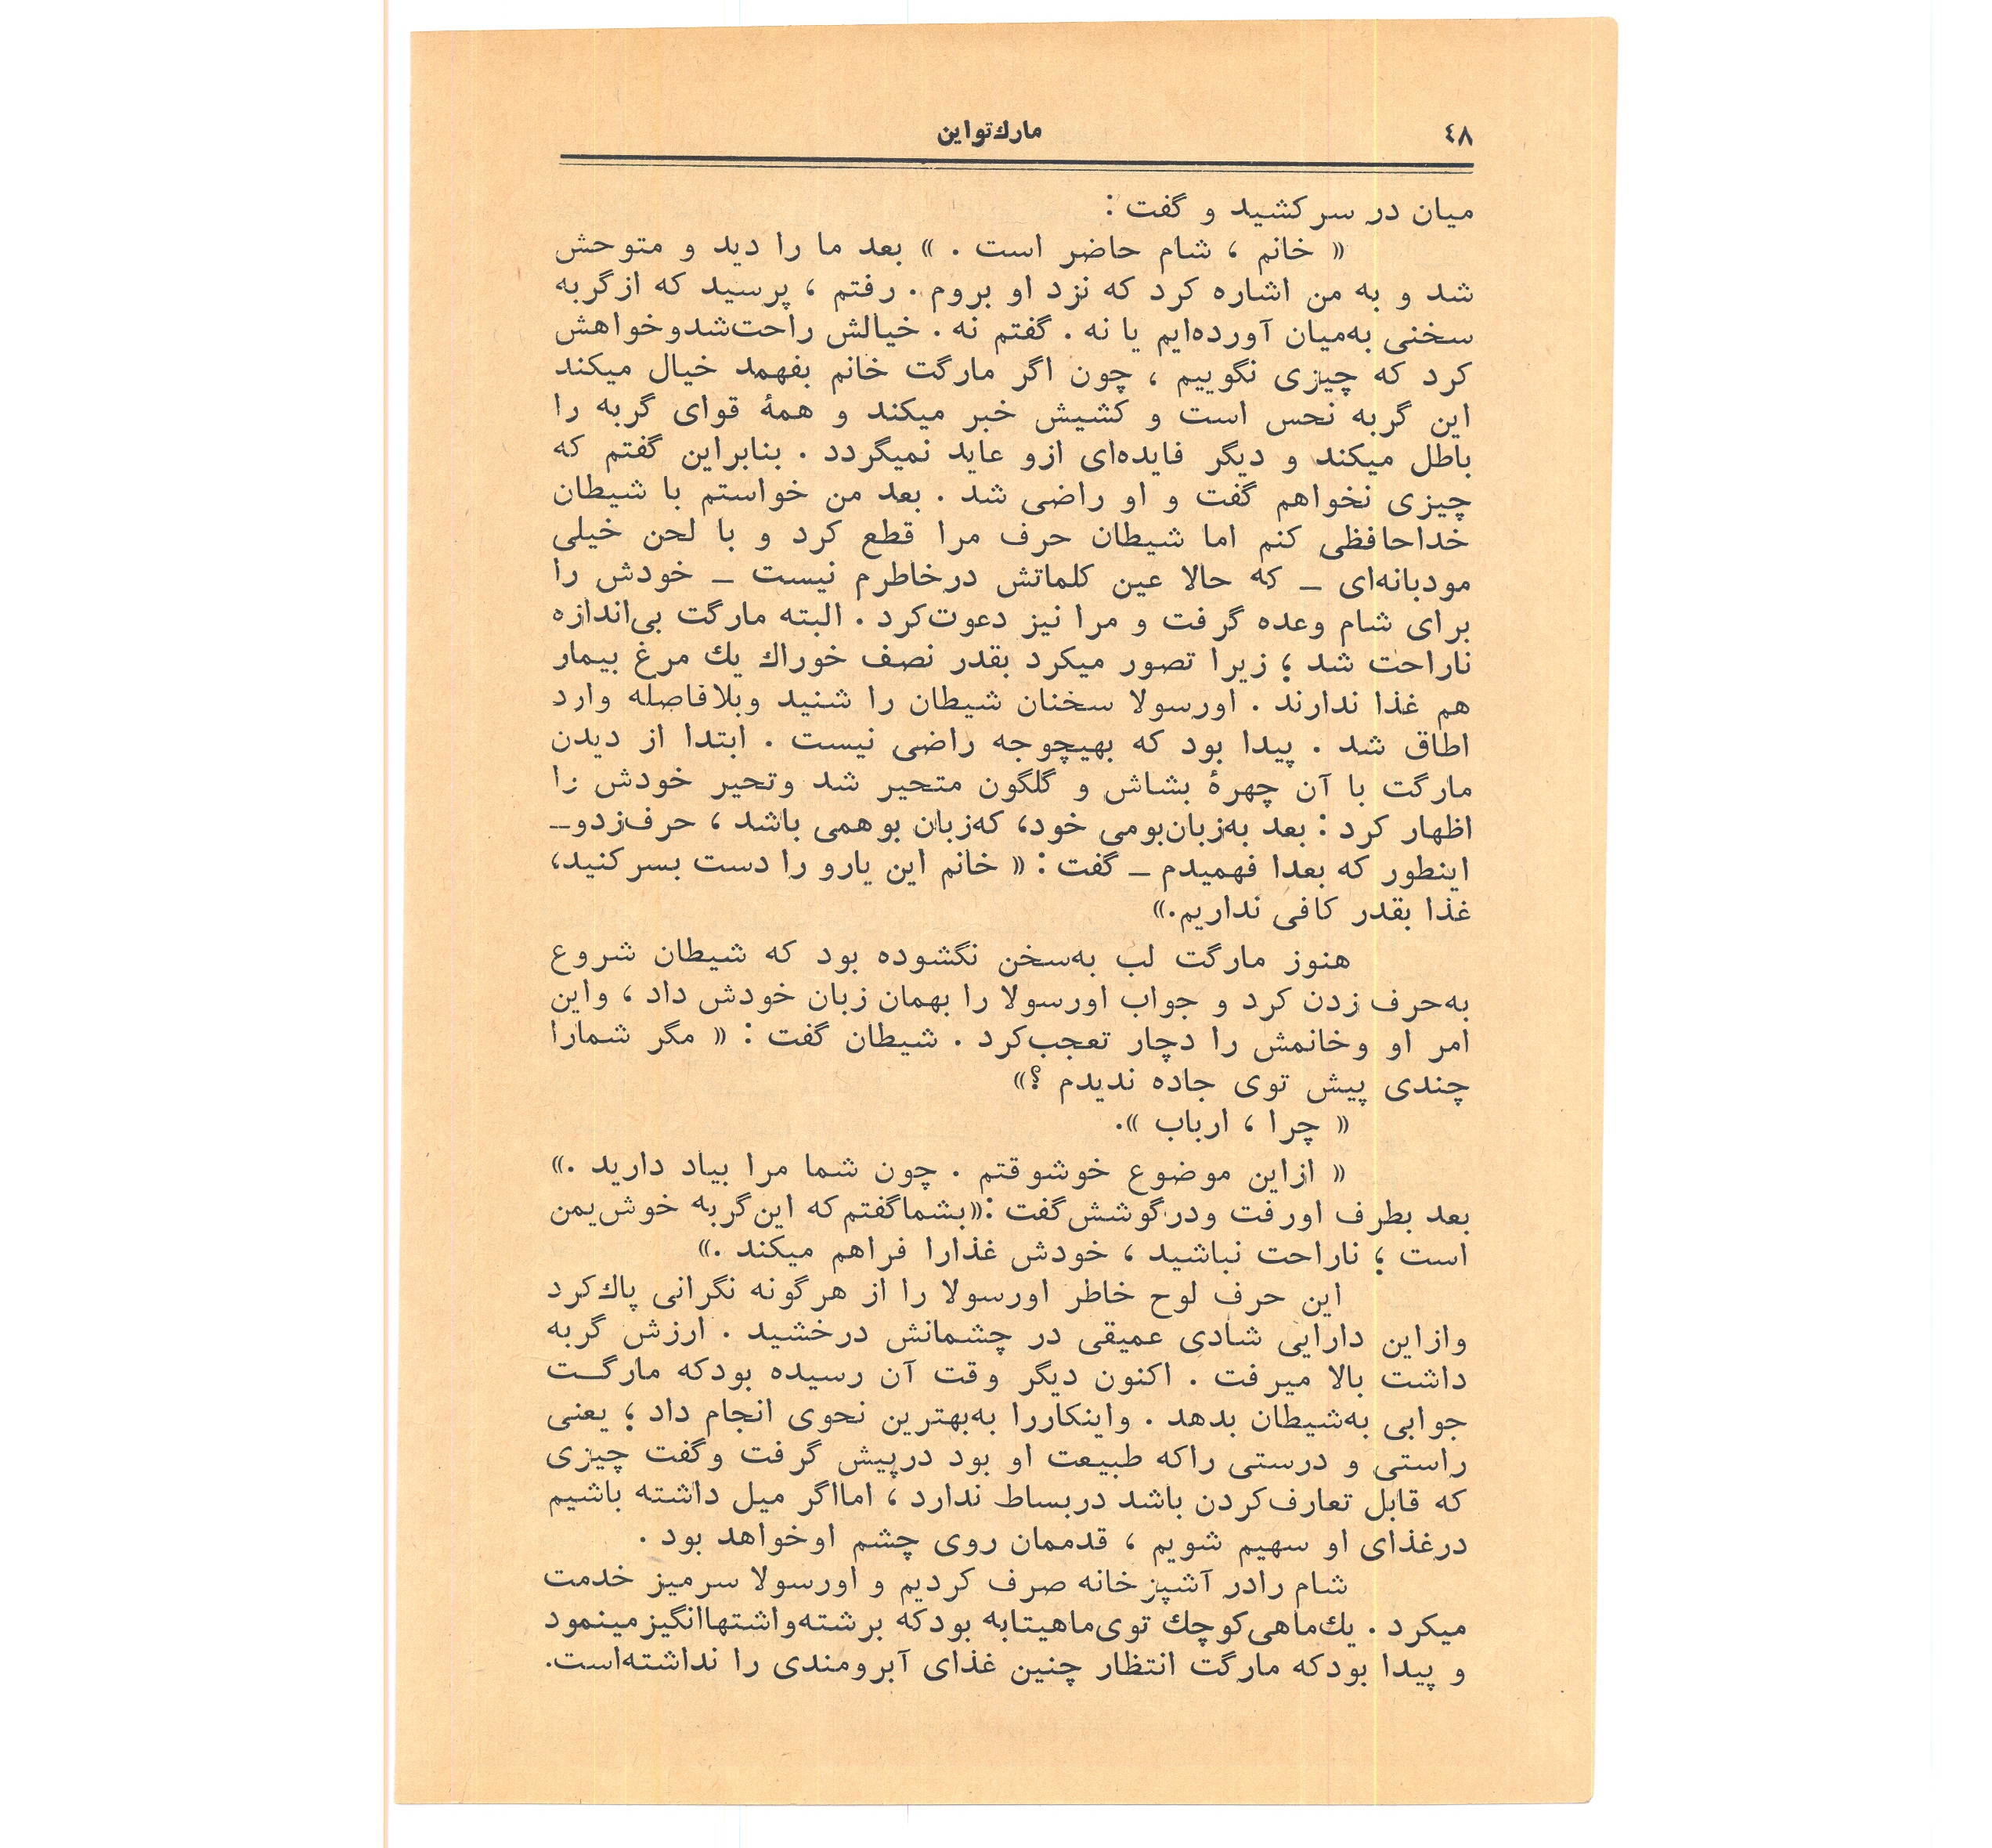 ٤٨
مارك‌تواین
میان در سر کشید و گفت :
« خانم ، شام حاضر است . » بعد ما را دید و متوحش
شد و به من اشاره کرد که نزد او بروم . رفتم ، پرسید که ازگربه
سخنی به‌میان آورده‌ایم یا نه . گفتم نه . خیالش راحت‌شدوخواهش
کرد که چیزی نگوییم ، چون اگر مارگت خانم بفهمد خیال میکند
این گربه نحس است و کشیش خبر میکند و همهٔ قوای گربه را
باطل میکند و دیگر فایده‌ای ازو عاید نمیگردد . بنابراین گفتم که
چیزی نخواهم گفت و او راضی شد . بعد من خواستم با شیطان
خداحافظی کنم اما شیطان حرف مرا قطع کرد و با لحن خیلی
مودبانه‌ای ـ که حالا عین کلماتش درخاطرم نیست ـ خودش را
برای شام وعده گرفت و مرا نیز دعوت‌کرد . البته مارگت بی‌اندازه
ناراحت شد ؛ زیرا تصور میکرد بقدر نصف خوراك یك مرغ بیمار
هم غذا ندارند . اورسولا سخنان شیطان را شنید وبلافاصله وارد
اطاق شد . پیدا بود که بهیچوجه راضی نیست . ابتدا از دیدن
مارگت با آن چهرهٔ بشاش و گلگون متحیر شد وتحیر خودش را
اظهار کرد : بعد به‌زبان‌بومی خود، که‌زبان بوهمی باشد ، حرف‌زدوـ
اینطور که بعدا فهمیدم ـ گفت : « خانم این یارو را دست بسر کنید،
غذا بقدر کافی نداریم.»
هنوز مارگت لب به‌سخن نگشوده بود که شیطان شروع
به‌حرف زدن کرد و جواب اورسولا را بهمان زبان خودش داد ، واین
امر او وخانمش را دچار تعجب‌کرد . شیطان گفت : « مگر شمارا
چندی پیش توی جاده ندیدم ؟»
« چرا ، ارباب ».
« ازاین موضوع خوشوقتم . چون شما مرا بیاد دارید .»
بعد بطرف اورفت ودرگوشش‌گفت :«بشماگفتم‌که این‌گربه خوش‌یمن
است ؛ ناراحت نباشید ، خودش غذارا فراهم میکند .»
این حرف لوح خاطر اورسولا را از هرگونه نگرانی پاك‌کرد
وازاین دارایی شادی عمیقی در چشمانش درخشید . ارزش گربه
داشت بالا میرفت . اکنون دیگر وقت آن رسیده بودکه مارگـت
جوابی به‌شیطان بدهد . واینکاررا به‌بهترین نحوی انجام داد ؛ یعنی
راستی و درستی راکه طبیعت او بود درپیش گرفت وگفت چیزی
که قابل تعارف‌کردن باشد دربساط ندارد ، امااگر میل داشته باشیم
درغذای او سهیم شویم ، قدممان روی چشم اوخواهد بود .
شام رادر آشپزخانه صرف کردیم و اورسولا سرمیز خدمت
میکرد . یك‌ماهی‌کوچك توی‌ماهیتابه بودکه برشته‌واشتهاانگیزمینمود
و پیدا بودکه مارگت انتظار چنین غذای آبرومندی را نداشته‌است.